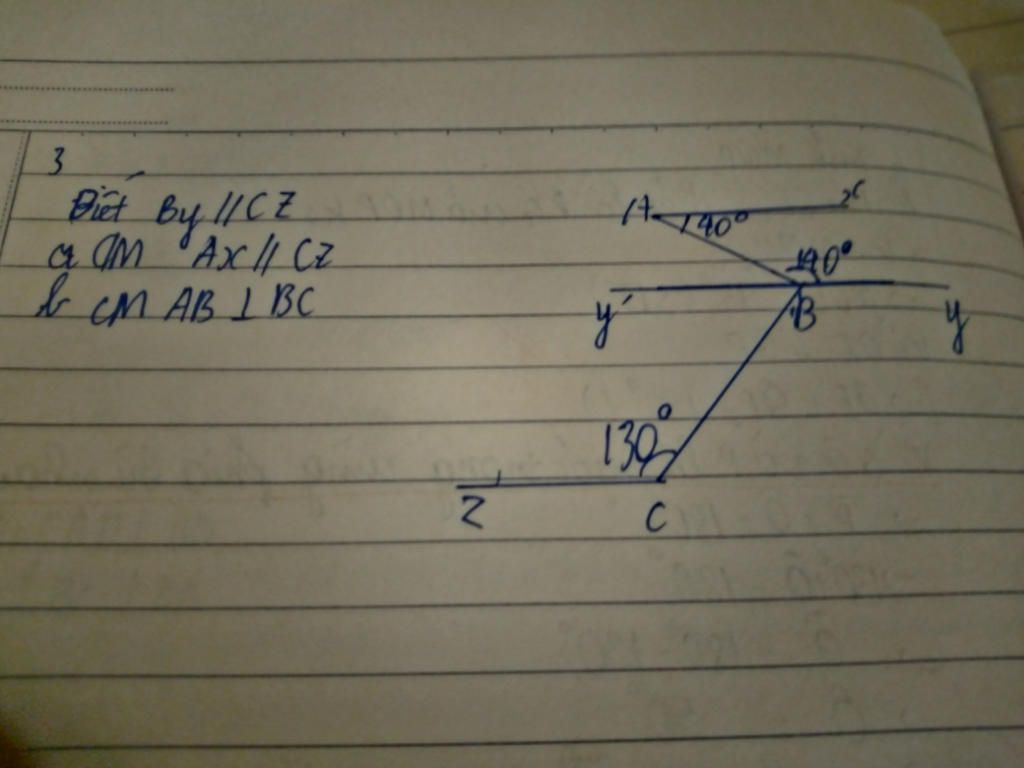 3
Biết By // CZ
a CM Ax // CZ
b CM AB ⊥ BC
A
x
140°
y'
B
y
130°
Z
C